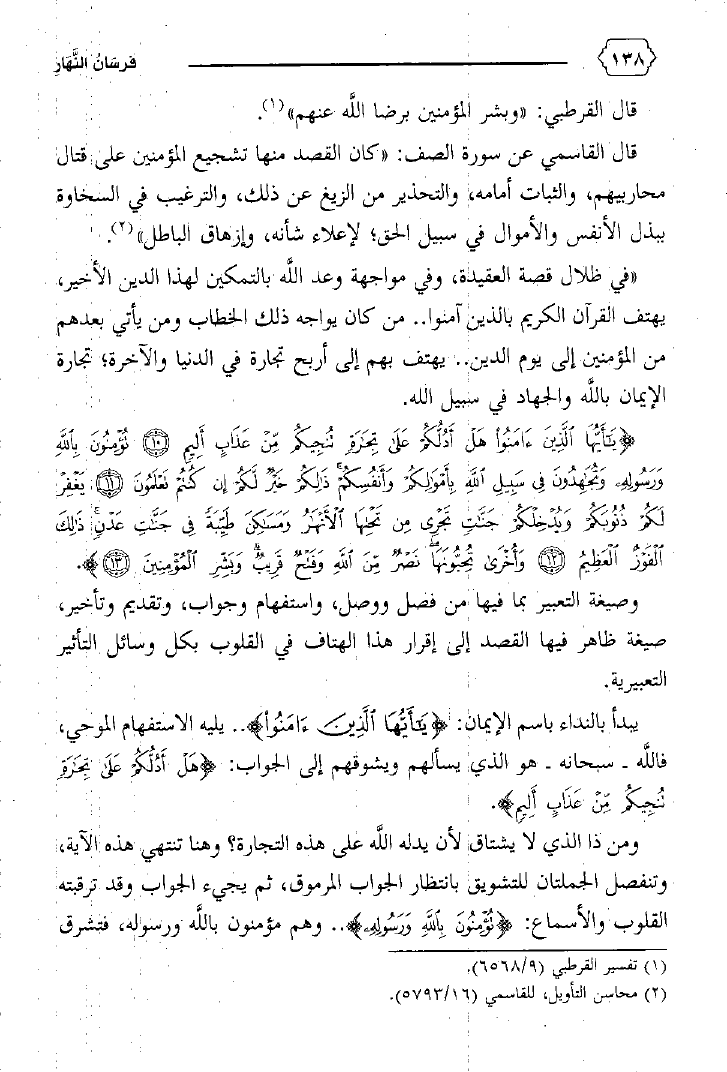 ١٣٨ فرسان النَّهَار
قال القرطبي: «وبشر المؤمنين برضا اللَّه عنهم»(١).
قال القاسمي عن سورة الصف: «كان القصد منها تشجيع المؤمنين على قتال
محاربيهم، والثبات أمامه، والتحذير من الزيغ عن ذلك، والترغيب في السخاوة
ببذل الأنفس والأموال في سبيل الحق؛ لإعلاء شأنه، وإزهاق الباطل»(٢).
«في ظلال قصة العقيدة، وفي مواجهة وعد اللَّه بالتمكين لهذا الدين الأخير،
يهتف القرآن الكريم بالذين آمنوا.. من كان يواجه ذلك الخطاب ومن يأتي بعدهم
من المؤمنين إلى يوم الدين.. يهتف بهم إلى أربح تجارة في الدنيا والآخرة؛ تجارة
الإيمان باللَّه والجهاد في سبيل الله.
﴿يَٰٓأَيُّهَا ٱلَّذِينَ ءَامَنُوا۟ هَلْ أَدُلُّكُمْ عَلَىٰ تِجَٰرَةٍ تُنجِيكُم مِّنْ عَذَابٍ أَلِيمٍ ۝١٠ تُؤْمِنُونَ بِٱللَّهِ
وَرَسُولِهِۦ وَتُجَٰهِدُونَ فِى سَبِيلِ ٱللَّهِ بِأَمْوَٰلِكُمْ وَأَنفُسِكُمْ ۚ ذَٰلِكُمْ خَيْرٌ لَّكُمْ إِن كُنتُمْ تَعْلَمُونَ ۝١١ يَغْفِرْ
لَكُمْ ذُنُوبَكُمْ وَيُدْخِلْكُمْ جَنَّٰتٍ تَجْرِى مِن تَحْتِهَا ٱلْأَنْهَٰرُ وَمَسَٰكِنَ طَيِّبَةً فِى جَنَّٰتِ عَدْنٍ ۚ ذَٰلِكَ
ٱلْفَوْزُ ٱلْعَظِيمُ ۝١٢ وَأُخْرَىٰ تُحِبُّونَهَا ۖ نَصْرٌ مِّنَ ٱللَّهِ وَفَتْحٌ قَرِيبٌ ۗ وَبَشِّرِ ٱلْمُؤْمِنِينَ ۝١٣﴾.
وصيغة التعبير بما فيها من فصل ووصل، واستفهام وجواب، وتقديم وتأخير،
صيغة ظاهر فيها القصد إلى إقرار هذا الهتاف في القلوب بكل وسائل التأثير
التعبيرية.
يبدأ بالنداء باسم الإيمان: ﴿يَٰٓأَيُّهَا ٱلَّذِينَ ءَامَنُوا۟﴾.. يليه الاستفهام الموحي،
فاللَّه ـ سبحانه ـ هو الذي يسألهم ويشوقهم إلى الجواب: ﴿هَلْ أَدُلُّكُمْ عَلَىٰ تِجَٰرَةٍ
تُنجِيكُم مِّنْ عَذَابٍ أَلِيمٍ﴾.
ومن ذا الذي لا يشتاق لأن يدله اللَّه على هذه التجارة؟ وهنا تنتهي هذه الآية،
وتنفصل الجملتان للتشويق بانتظار الجواب المرموق، ثم يجيء الجواب وقد ترقبته
القلوب والأسماع: ﴿تُؤْمِنُونَ بِٱللَّهِ وَرَسُولِهِۦ﴾.. وهم مؤمنون باللَّه ورسوله، فتشرق
(١) تفسير القرطبي (٦٥٦٨/٩).
(٢) محاسن التأويل، للقاسمي (٥٧٩٣/١٦).